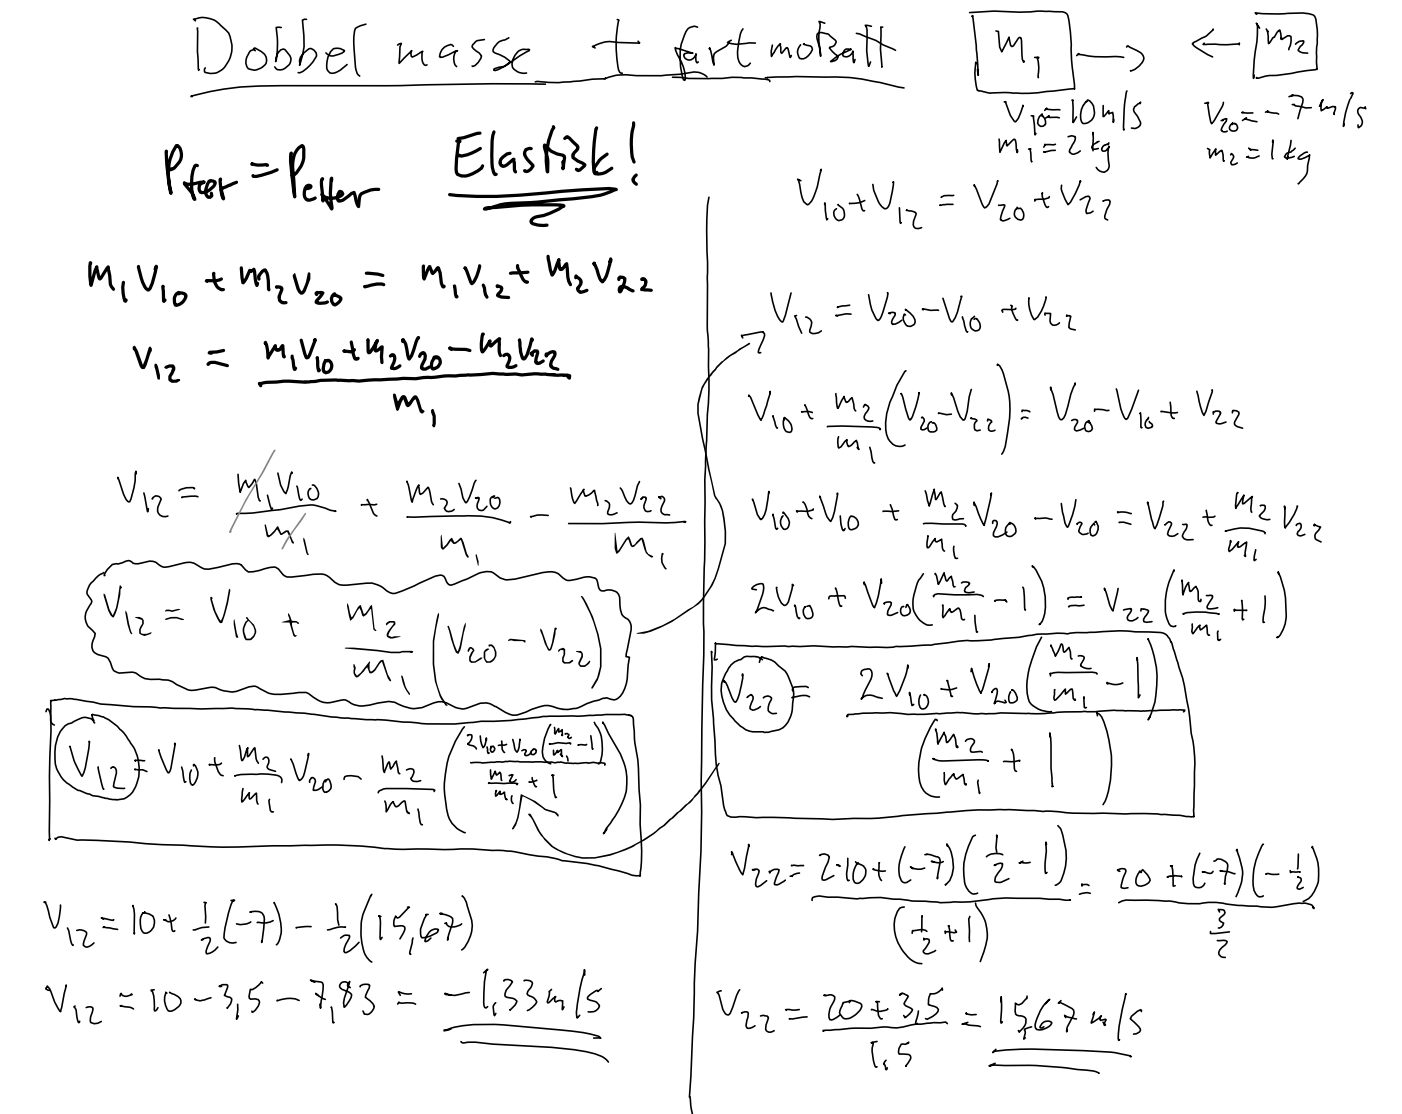 Dobbel masse + fart motsatt
m₁ → ← m₂
V₁₀ = 10 m/s V₂₀ = -7 m/s
m₁ = 2 kg m₂ = 1 kg
P_før = P_etter Elastisk!
m₁V₁₀ + m₂V₂₀ = m₁V₁₂ + m₂V₂₂
V₁₂ = (m₁V₁₀ + m₂V₂₀ - m₂V₂₂)/m₁
V₁₂ = m₁V₁₀/m₁ + m₂V₂₀/m₁ - m₂V₂₂/m₁
V₁₂ = V₁₀ + m₂/m₁ (V₂₀ - V₂₂)
V₁₂ = V₁₀ + m₂/m₁ V₂₀ - m₂/m₁ ((2V₁₀ + V₂₀(m₂/m₁ - 1))/(m₂/m₁ + 1))
V₁₂ = 10 + 1/2(-7) - 1/2(15,67)
V₁₂ = 10 - 3,5 - 7,83 = -1,33 m/s
V₁₀ + V₁₂ = V₂₀ + V₂₂
V₁₂ = V₂₀ - V₁₀ + V₂₂
V₁₀ + m₂/m₁ (V₂₀ - V₂₂) = V₂₀ - V₁₀ + V₂₂
V₁₀ + V₁₀ + m₂/m₁ V₂₀ - V₂₀ = V₂₂ + m₂/m₁ V₂₂
2V₁₀ + V₂₀(m₂/m₁ - 1) = V₂₂(m₂/m₁ + 1)
V₂₂ = (2V₁₀ + V₂₀(m₂/m₁ - 1))/(m₂/m₁ + 1)
V₂₂ = (2·10 + (-7)(1/2 - 1))/(1/2 + 1) = (20 + (-7)(-1/2))/(3/2)
V₂₂ = (20 + 3,5)/1,5 = 15,67 m/s